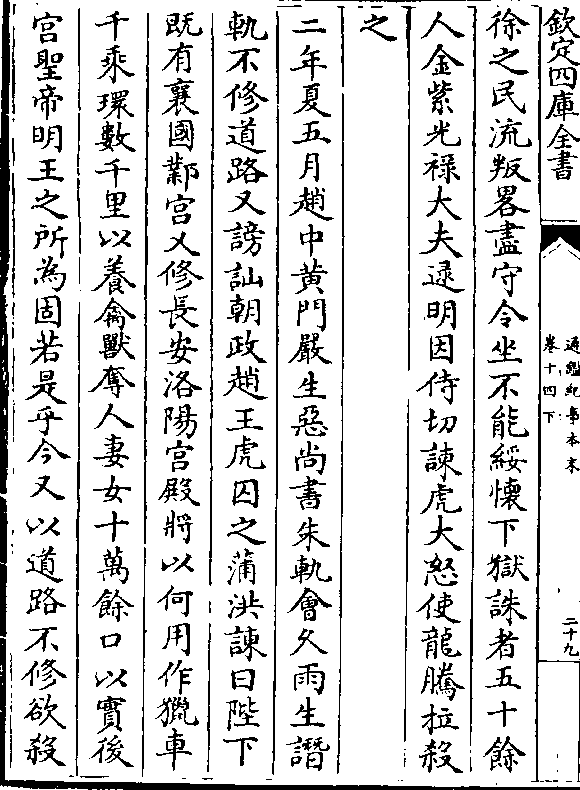 欽定四庫全書
通鑑紀事本末
卷十四下
二十九
徐之民流叛畧盡守令坐不能綏懷下獄誅者五十餘
人金紫光祿大夫逯明因侍切諫虎大怒使龍騰拉殺
之
二年夏五月趙中黃門嚴生惡尚書朱軌會久雨生譖
軌不修道路又謗訕朝政趙王虎囚之蒲洪諫曰陛下
既有襄國鄴宮又修長安洛陽宮殿將以何用作獵車
千乘環數千里以養禽獸奪人妻女十萬餘口以實後
宮聖帝明王之所為固若是乎今又以道路不修欲殺